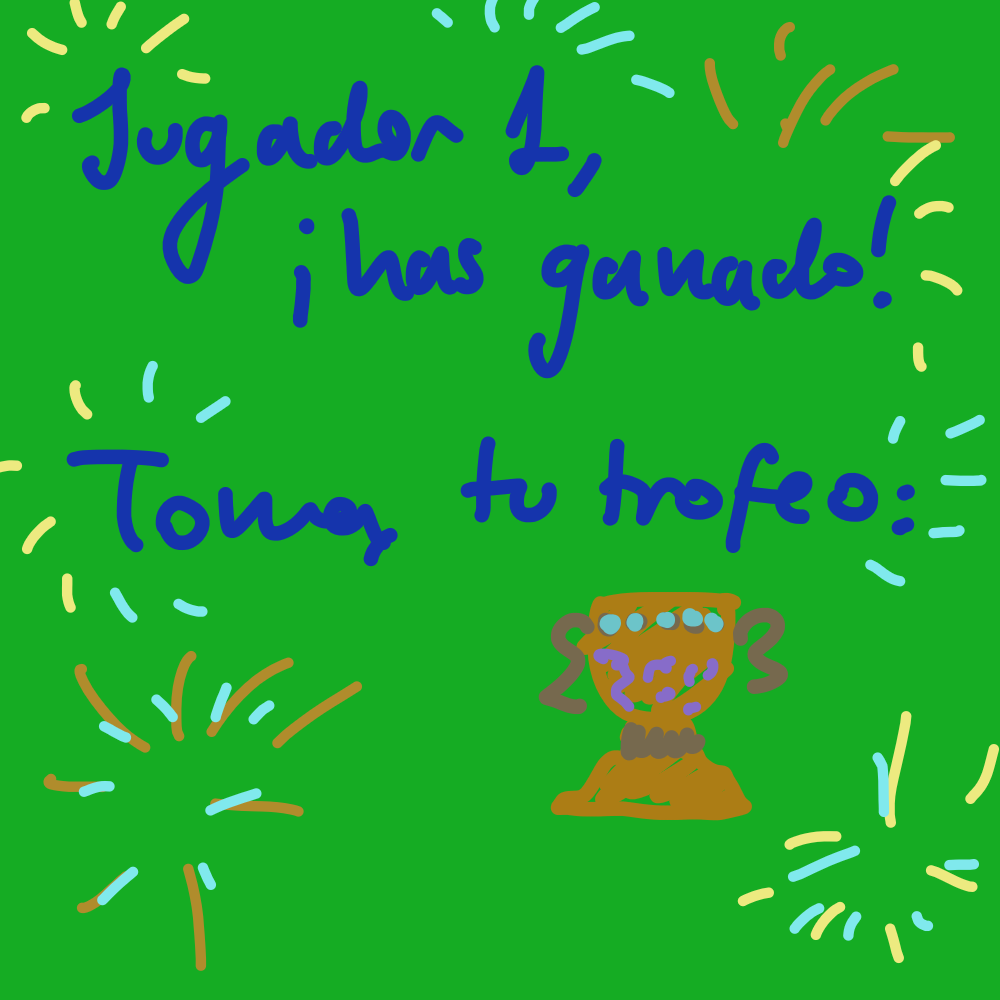 Jugador 1,
¡has ganado!
Toma, tu trofeo: